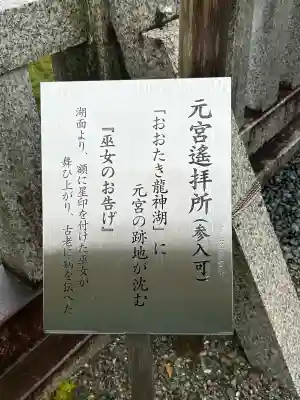 元宮遙拝所(参入可)
「おおたき龍神湖」に
元宮の跡地が沈む
『巫女のお告げ』
湖面より、額に星印を付けた巫女が
舞ひ上がり、古老に病を伝へた